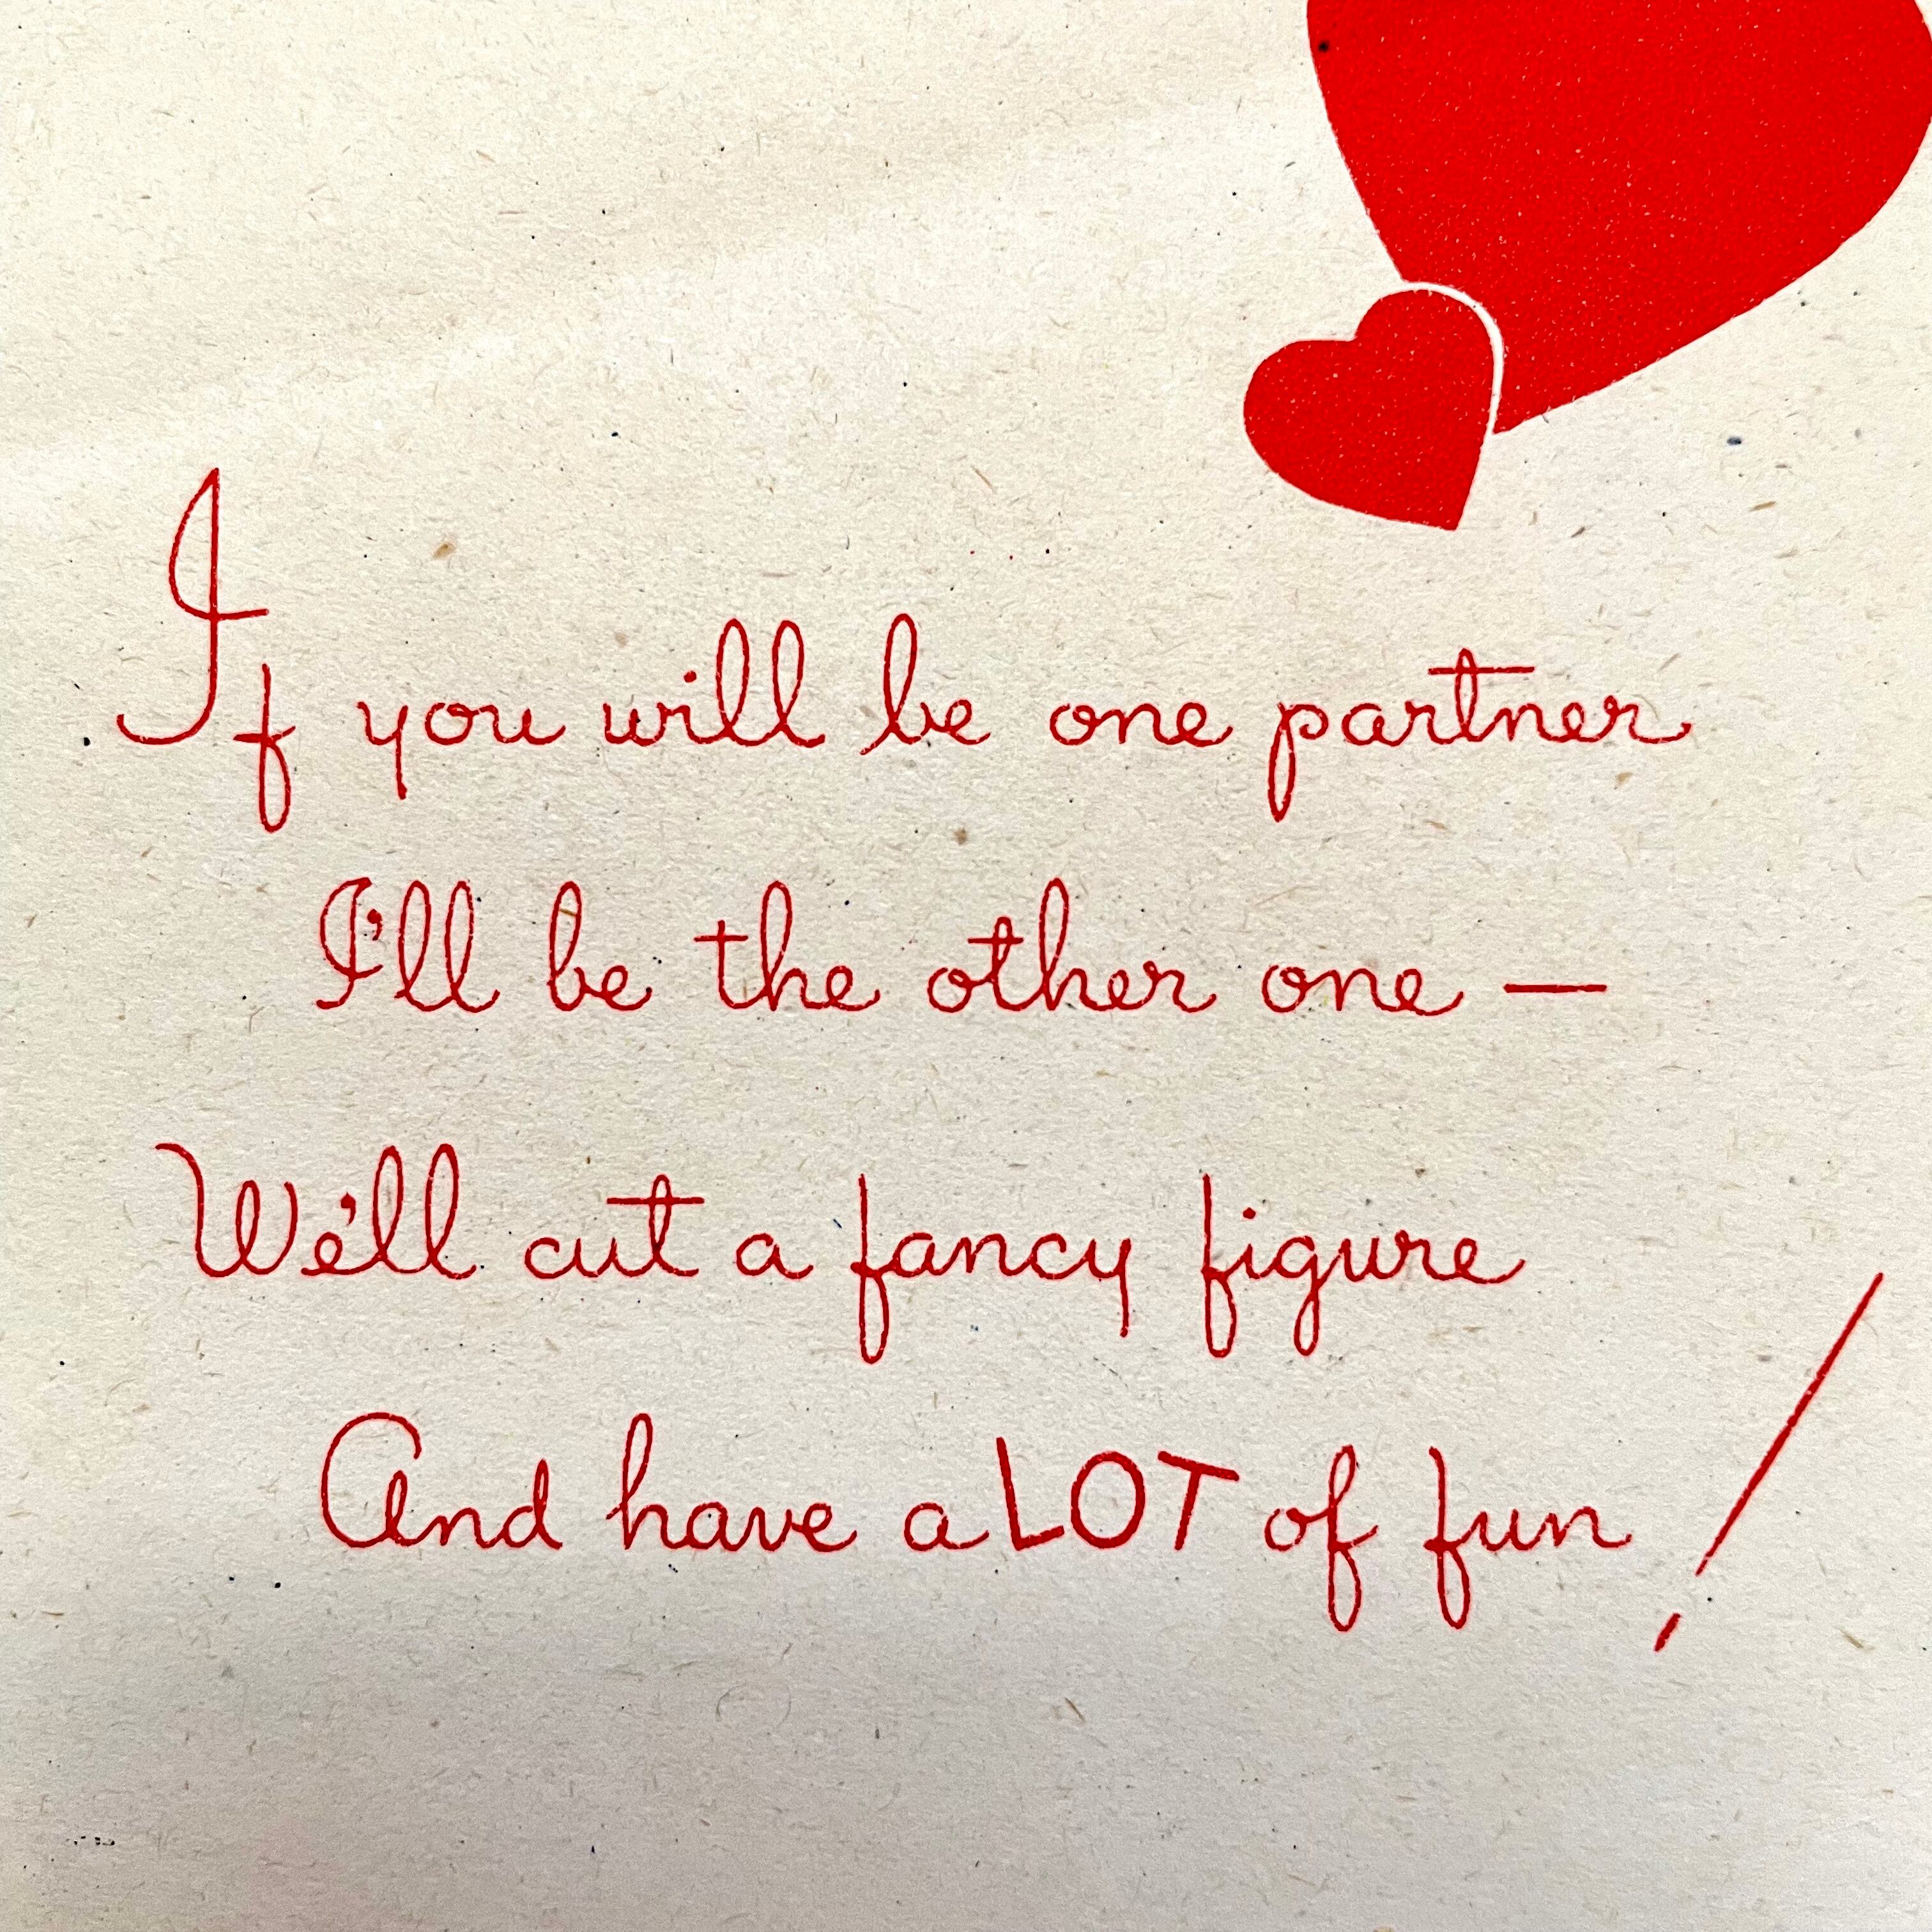 If you will be one partner
I'll be the other one —
We'll cut a fancy figure
And have a LOT of fun!